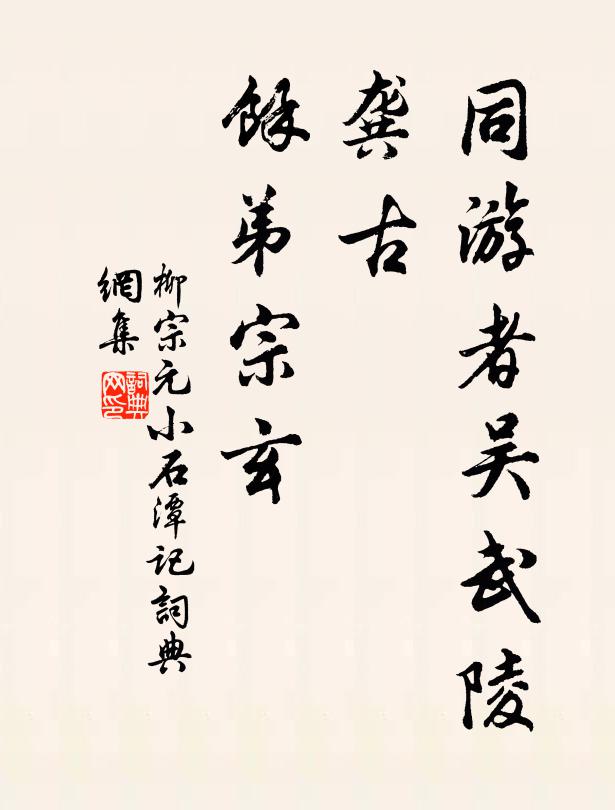 同游者吴武陵
龚古
馀弟宗玄
柳宗元小石潭记詞典
網集
詞典
网印